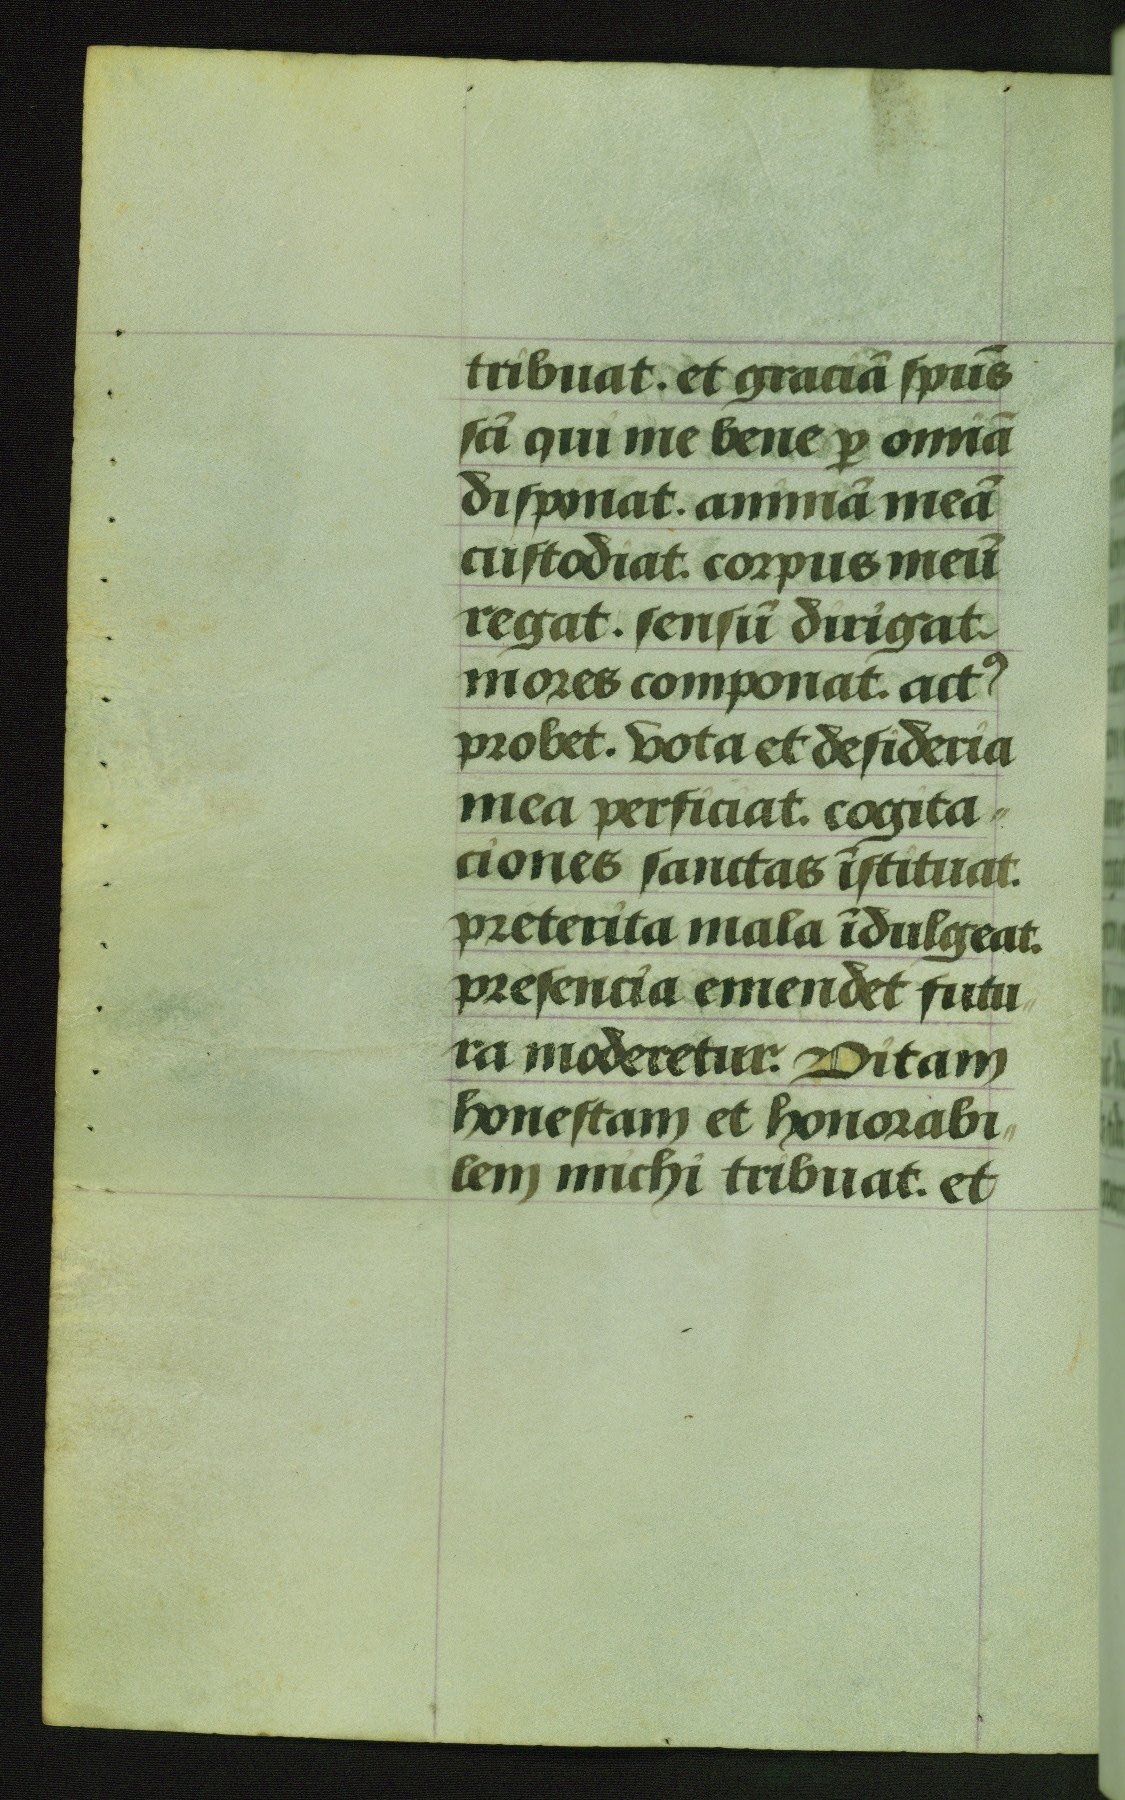 tribuat. et graciā spūs
scī qui me bene ꝑ om̄īa
disponat. animā meā
custodiat. corpus meū
regat. sensū dirigat.
mores componat. actꝰ
probet. vota et desideria
mea perficiat. cogita〃
ciones sanctas īstituat.
preterita mala īdulgeat.
presencia emendet futu〃
ra moderetur. Vitam
honestam et honorabi〃
lem michi tribuat. et